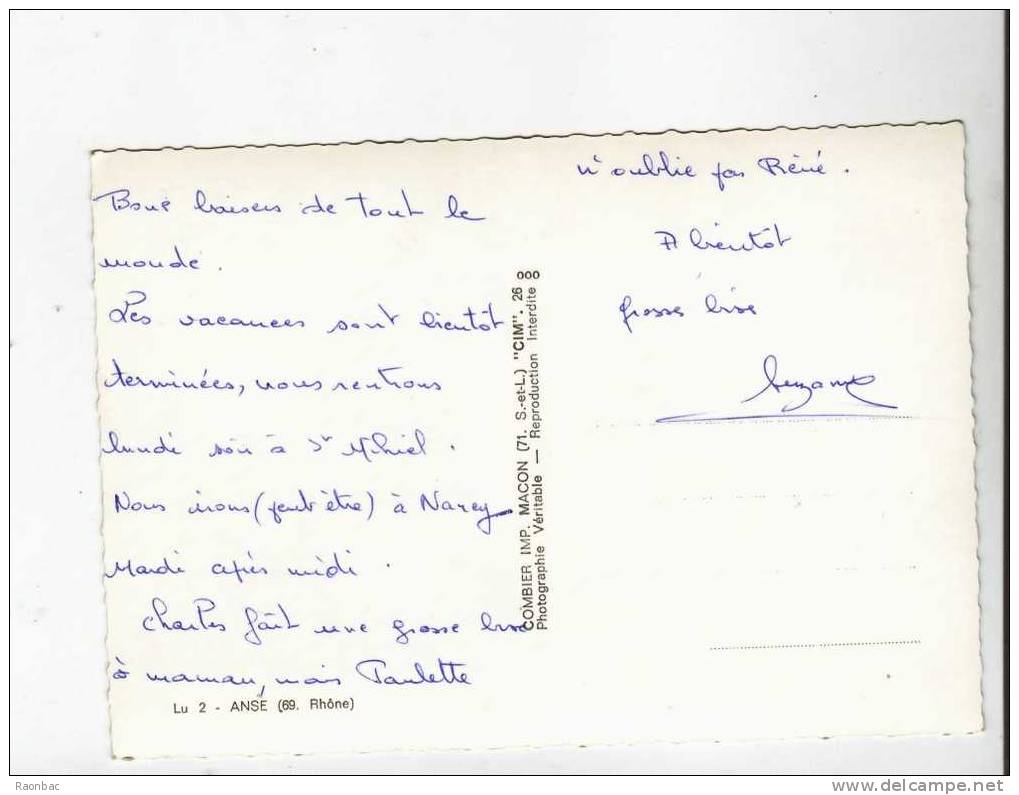 Bons baisers de tout le
monde.
Les vacances sont bientôt
terminées, nous rentrons
lundi soir à St Mihiel.
Nous irons (peut être) à Nancy
Mardi après midi.
Charles fait une grosse bise
à maman, mais Paulette
n'oublie pas Réné.
A bientôt
grosses bises
Suzanne
COMBIER IMP. MACON (71. S.-et-L.) "CIM". 26 000
Photographie Véritable — Reproduction Interdite
Lu 2 - ANSE (69. Rhône)
Raonbac
delcampe.net